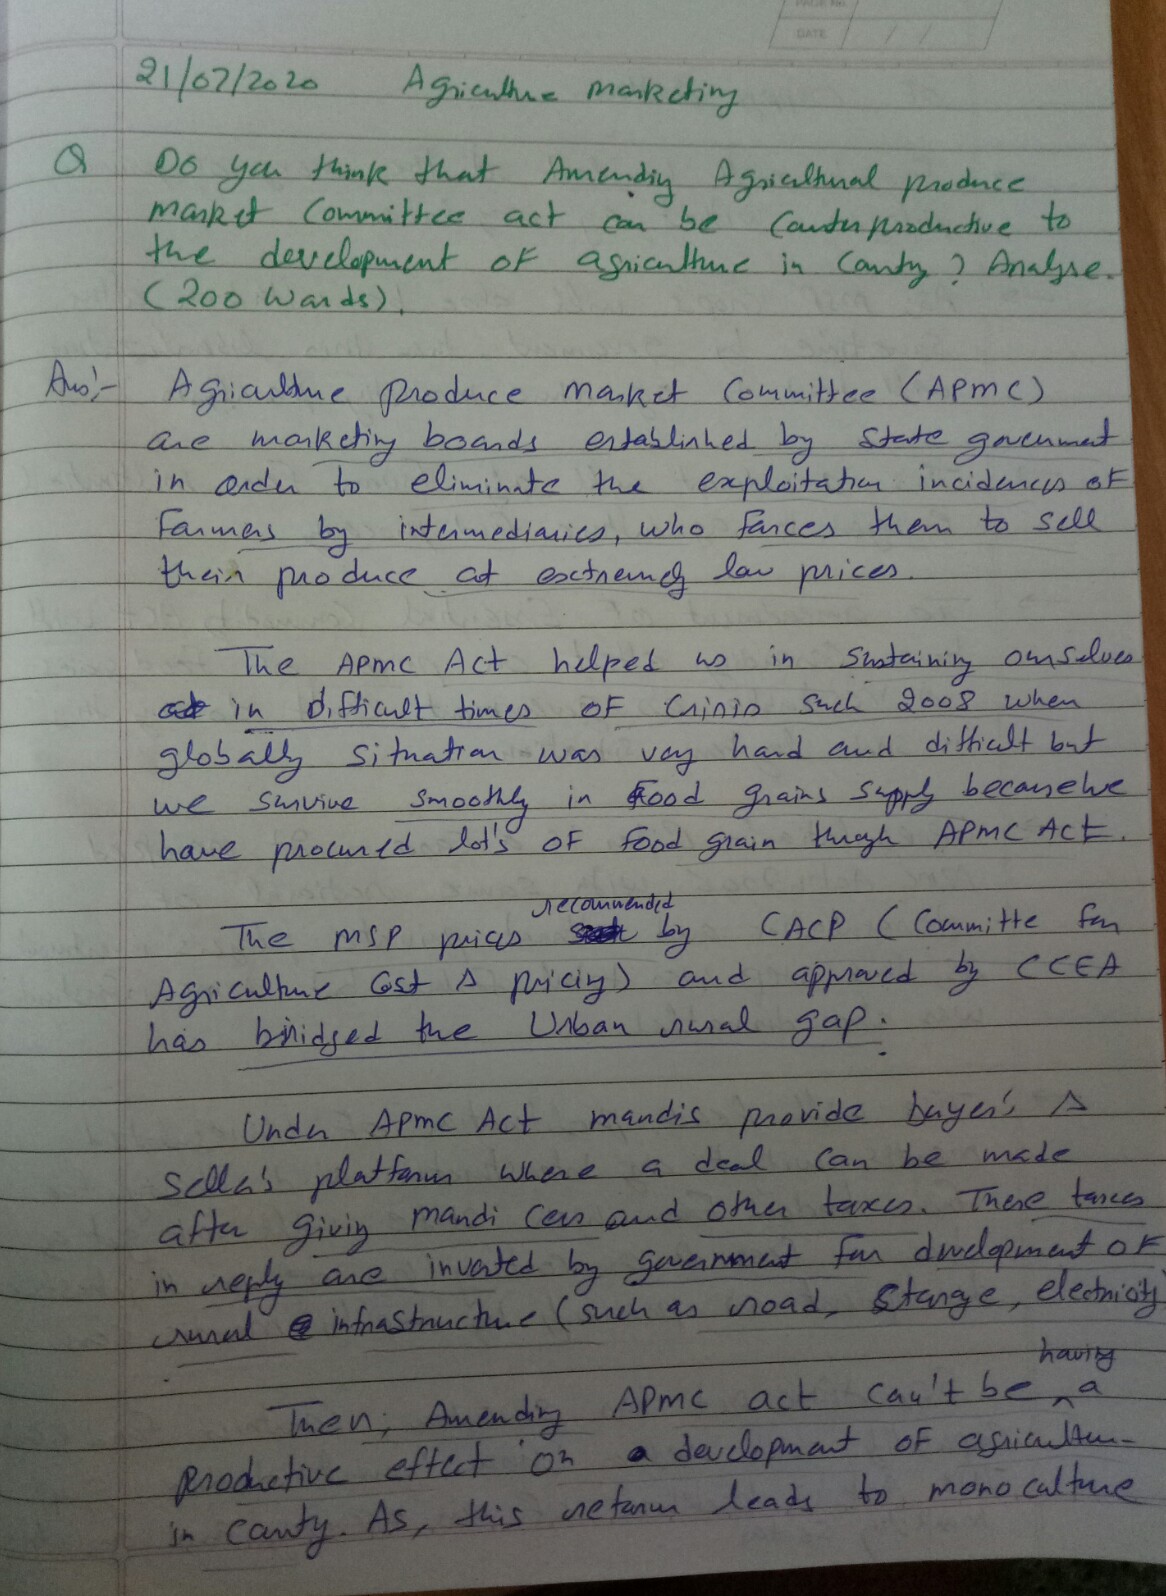 PAGE No.
DATE / /
21/07/2020 Agriculture marketing
Q Do you think that Amending Agricultural produce
market Committee act can be Counterproductive to
the development of agriculture in Country? Analyse.
(200 Words).
Ans:- Agriculture Produce Market Committee (APMC)
are marketing boards established by State government
in order to eliminate the exploitation incidences of
Farmers by intermediaries, who forces them to sell
their produce at extremely low prices.
The APMC Act helped us in Sustaining ourselves
in difficult times of Crisis such 2008 when
globally situation was very hard and difficult but
we survive smoothly in Food grains supply because we
have procured lot's of food grain through APMC Act.
The MSP prices recommended by CACP (Committe for
Agriculture Cost & pricing) and approved by CCEA
has bridged the Urban rural gap.
Under APMC Act mandis provide buyer's &
Seller's platform where a deal can be made
after giving mandi Cess and other taxes. These taxes
in reply are invested by government for development of
rural infrastructure (such as road, Storage, electricity
Then, Amending APMC act can't be having a
productive effect on development of agriculture
in country. As, this reform leads to mono culture